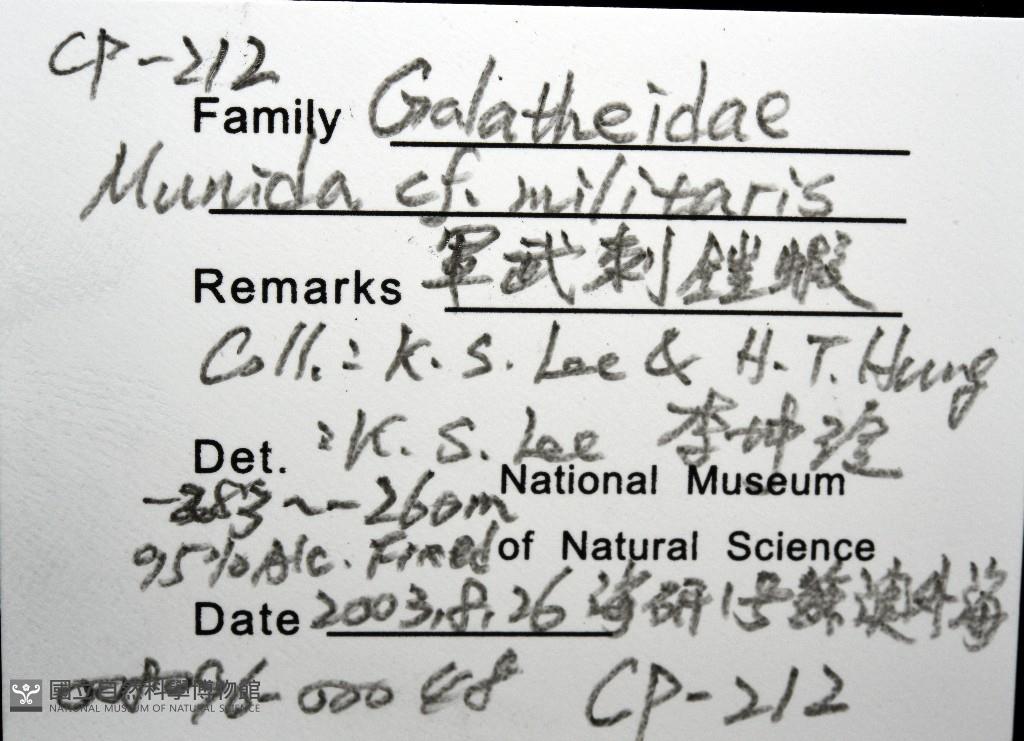 CP-212
Family Galatheidae
Munida cf. militaris
Remarks 軍武刺鎧蝦
Coll.: K. S. Lee & H. T. Hung
Det. : K. S. Lee 李坤瑄
National Museum
~-260m
95% Alc. Fixed of Natural Science
Date 2003.8.26 海研1号蘇澳外海
-00048 CP-212
國立自然科學博物館
NATIONAL MUSEUM OF NATURAL SCIENCE